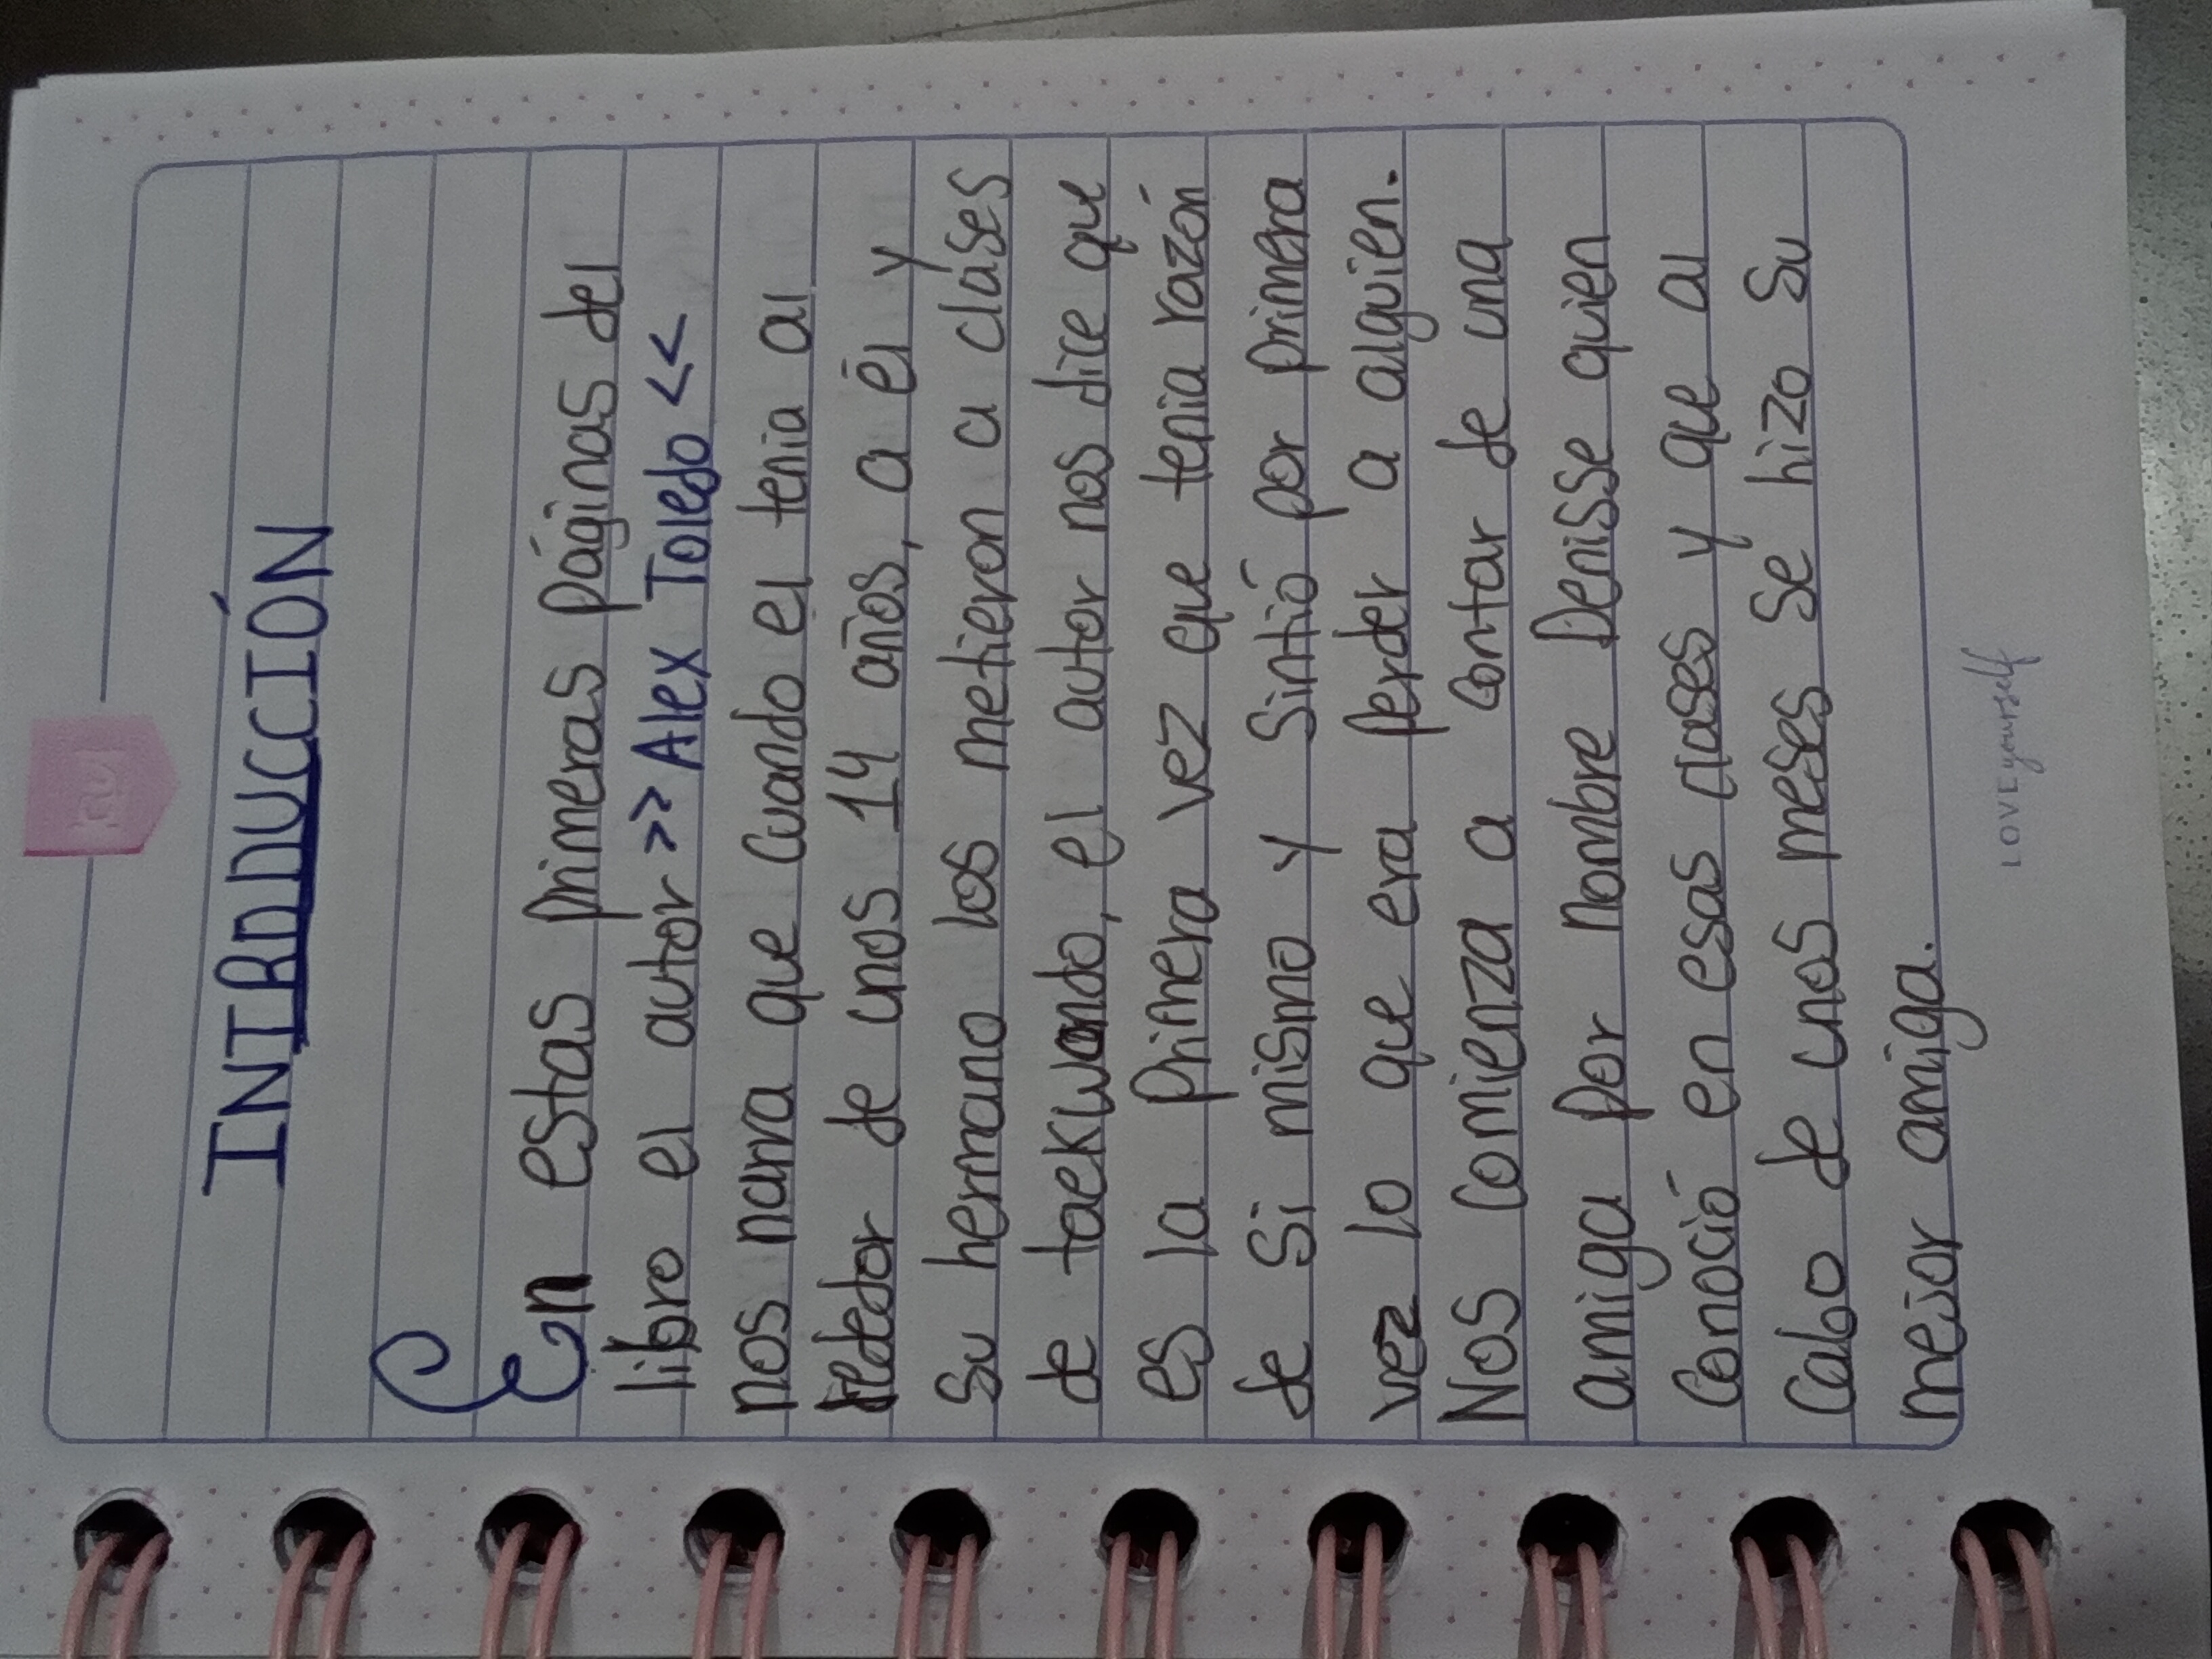 INTRDDUCCIÓN
En estas primeras páginas del
libro el autor >> Alex Toledo <<
nos narra que cuando el tenia al
rededor de unos 14 años, a él y
su hermano los metieron a clases
de taekwondo, el autor nos dice que
es la primera vez que tenia razón
de si mismo y sintió por primera
vez lo que era perder a alguien.
Nos comienza a contar de una
amiga por nombre Denisse quien
conoció en esas clases y que al
cabo de unos meses se hizo su
mejor amiga.
LOVE yourself